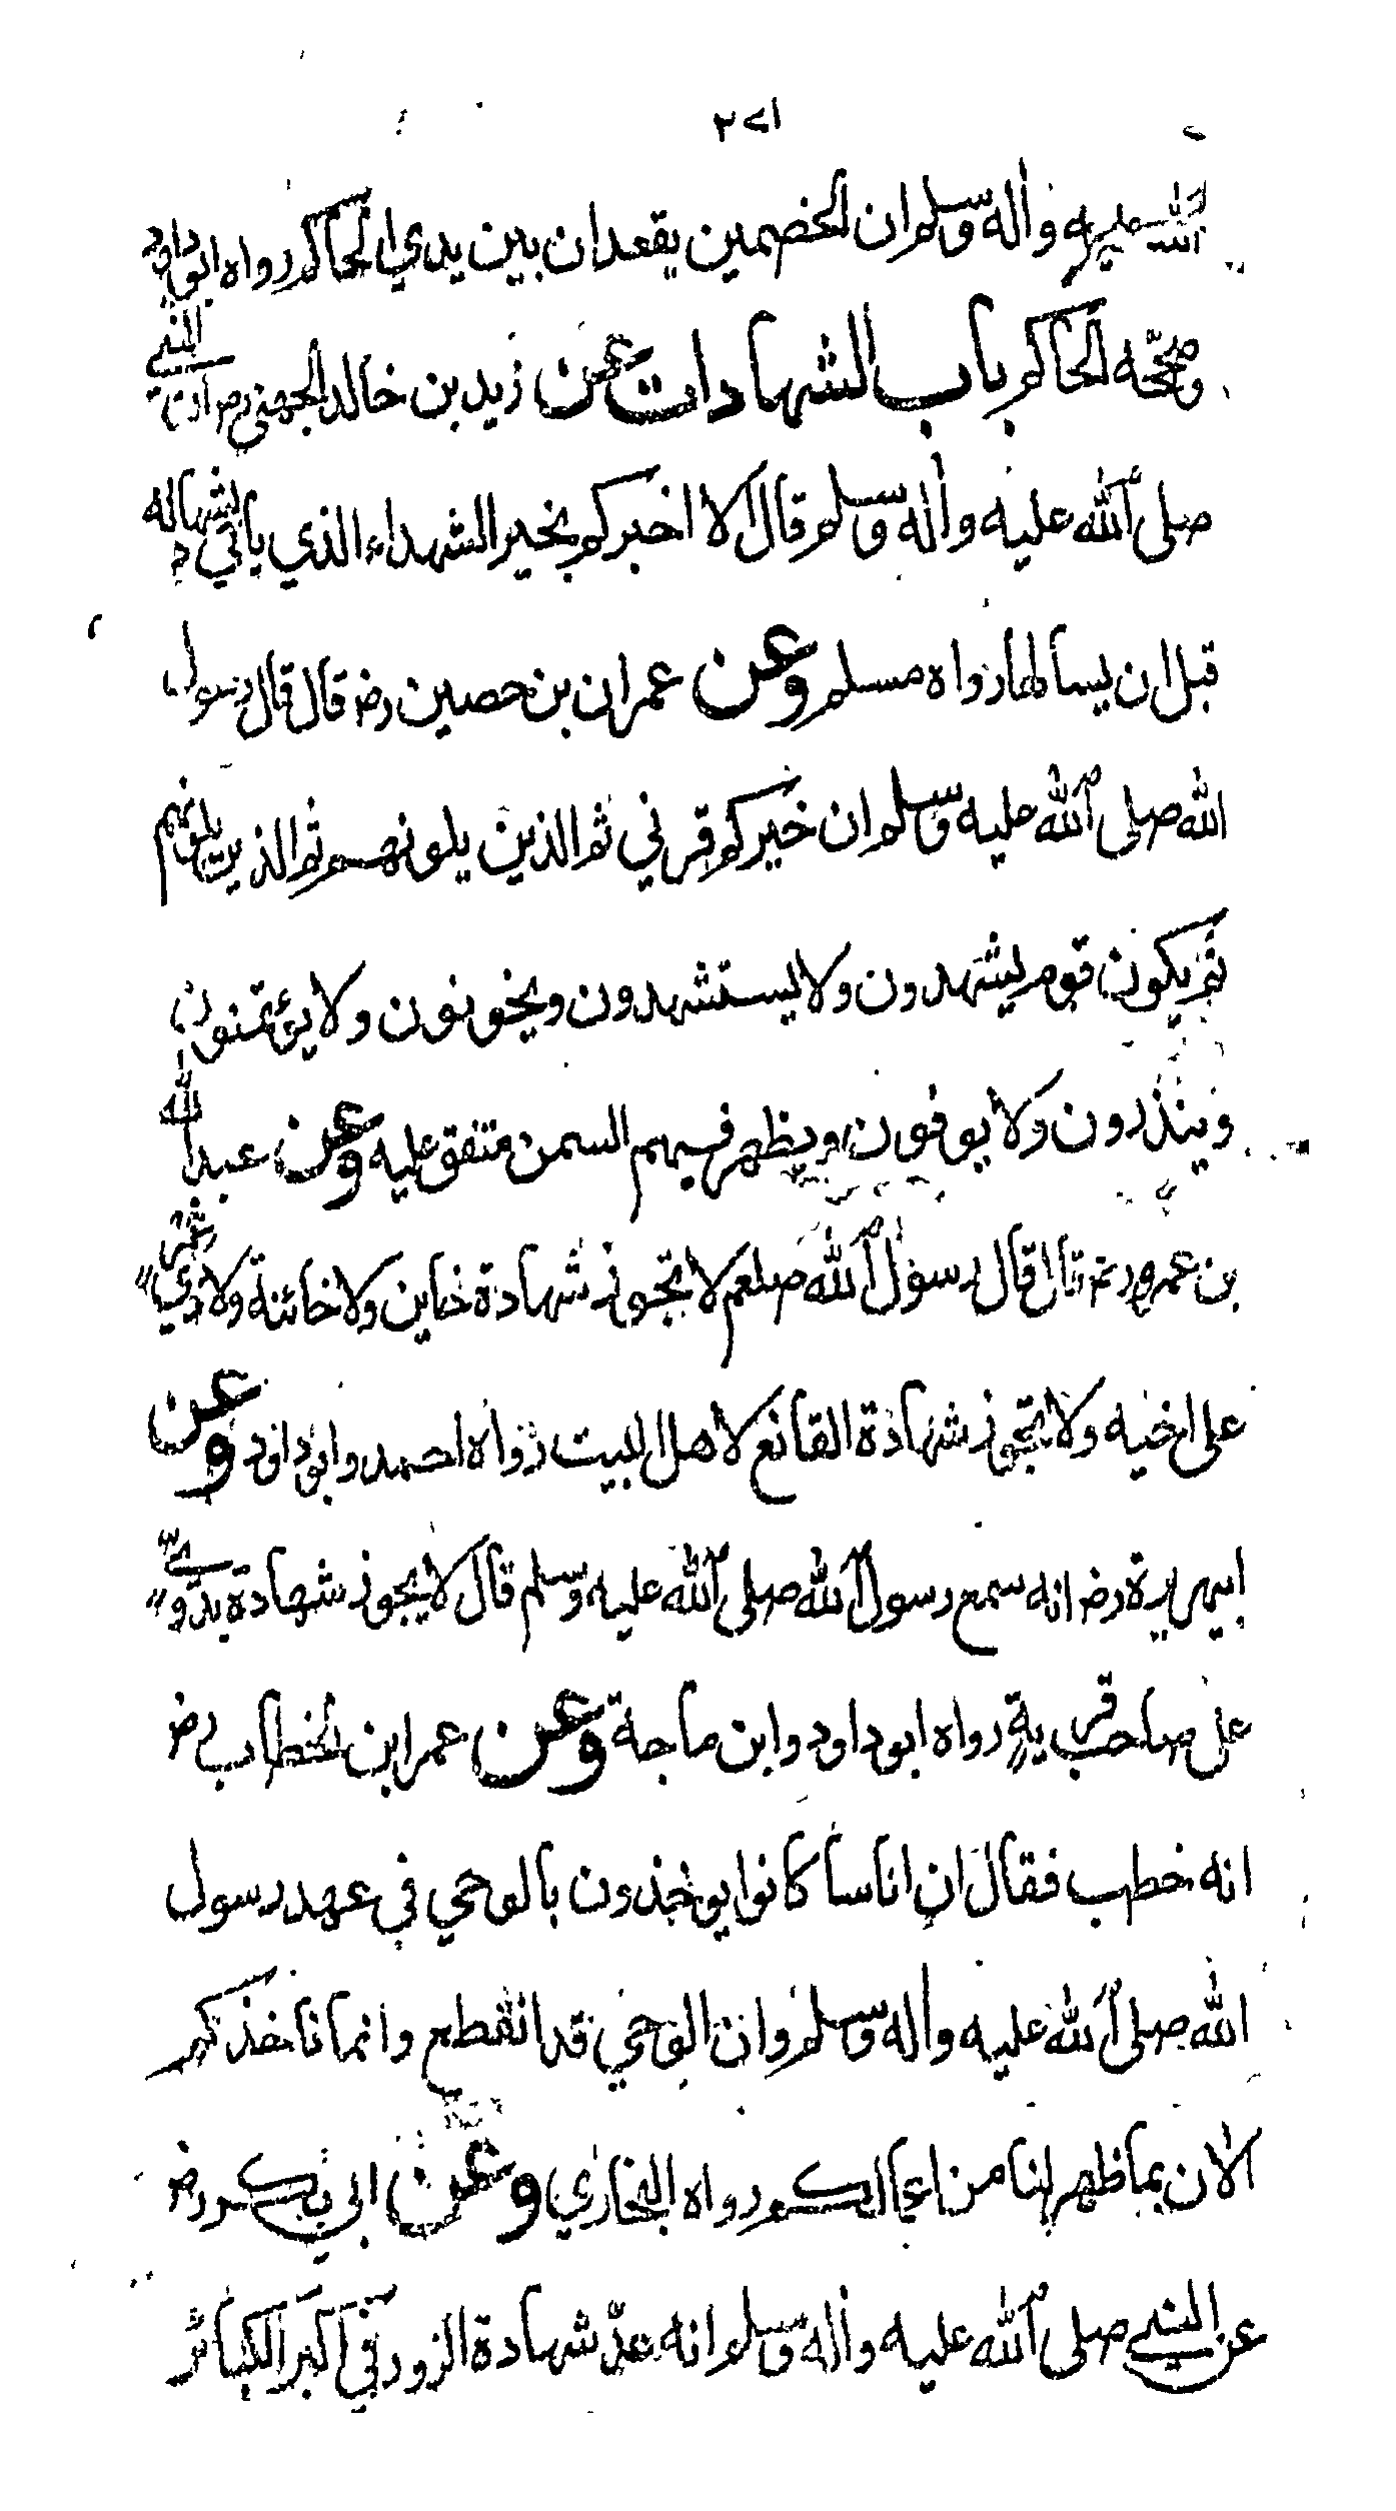 ٢٧١
الله عليه واله وسلم ان الخصمين يقعدان بين يدي الحاكم رواه ابو داود
وصححه الحاكم باب الشهادات عن زيد بن خالد الجهني رضـ ان النبي
صلى الله عليه واله وسلم قال الا اخبركم بخير الشهداء الذي ياتي بشهادته
قبل ان يسالها رواه مسلم وعن عمران بن حصين رضـ قال قال رسول
الله صلى الله عليه وسلم ان خيركم قرني ثم الذين يلونهم ثم الذين يلونهم
ثم يكون قوم يشهدون ولا يستشهدون ويخونون ولا يؤتمنون
وينذرون ولا يوفون ويظهر فيهم السمن متفق عليه وعن عبد الله
بن عمرو رضـ قال قال رسول الله صلعم لا تجوز شهادة خاين ولا خائنة ولا ذي غمر
على اخيه ولا تجوز شهادة القانع لاهل البيت رواه احمد وابو داود وعن
ابيهريرة رضـ انه سمع رسول الله صلى الله عليه وسلم قال لا يجوز شهادة بدوي
على صاحب قرية رواه ابو داود وابن ماجة وعن عمر ابن الخطاب رضـ
انه خطب فقال ان اناسا كانوا يوخذون بالوحي في عهد رسول
الله صلى الله عليه واله وسلم وان الوحي قد انقطع وانما ناخذكم
الان بما ظهر لنا من اعمالكم رواه البخاري وعن ابي بكر رضـ
عن النبي صلى الله عليه واله وسلم انه عدّ شهادة الزور في اكبر الكبائر